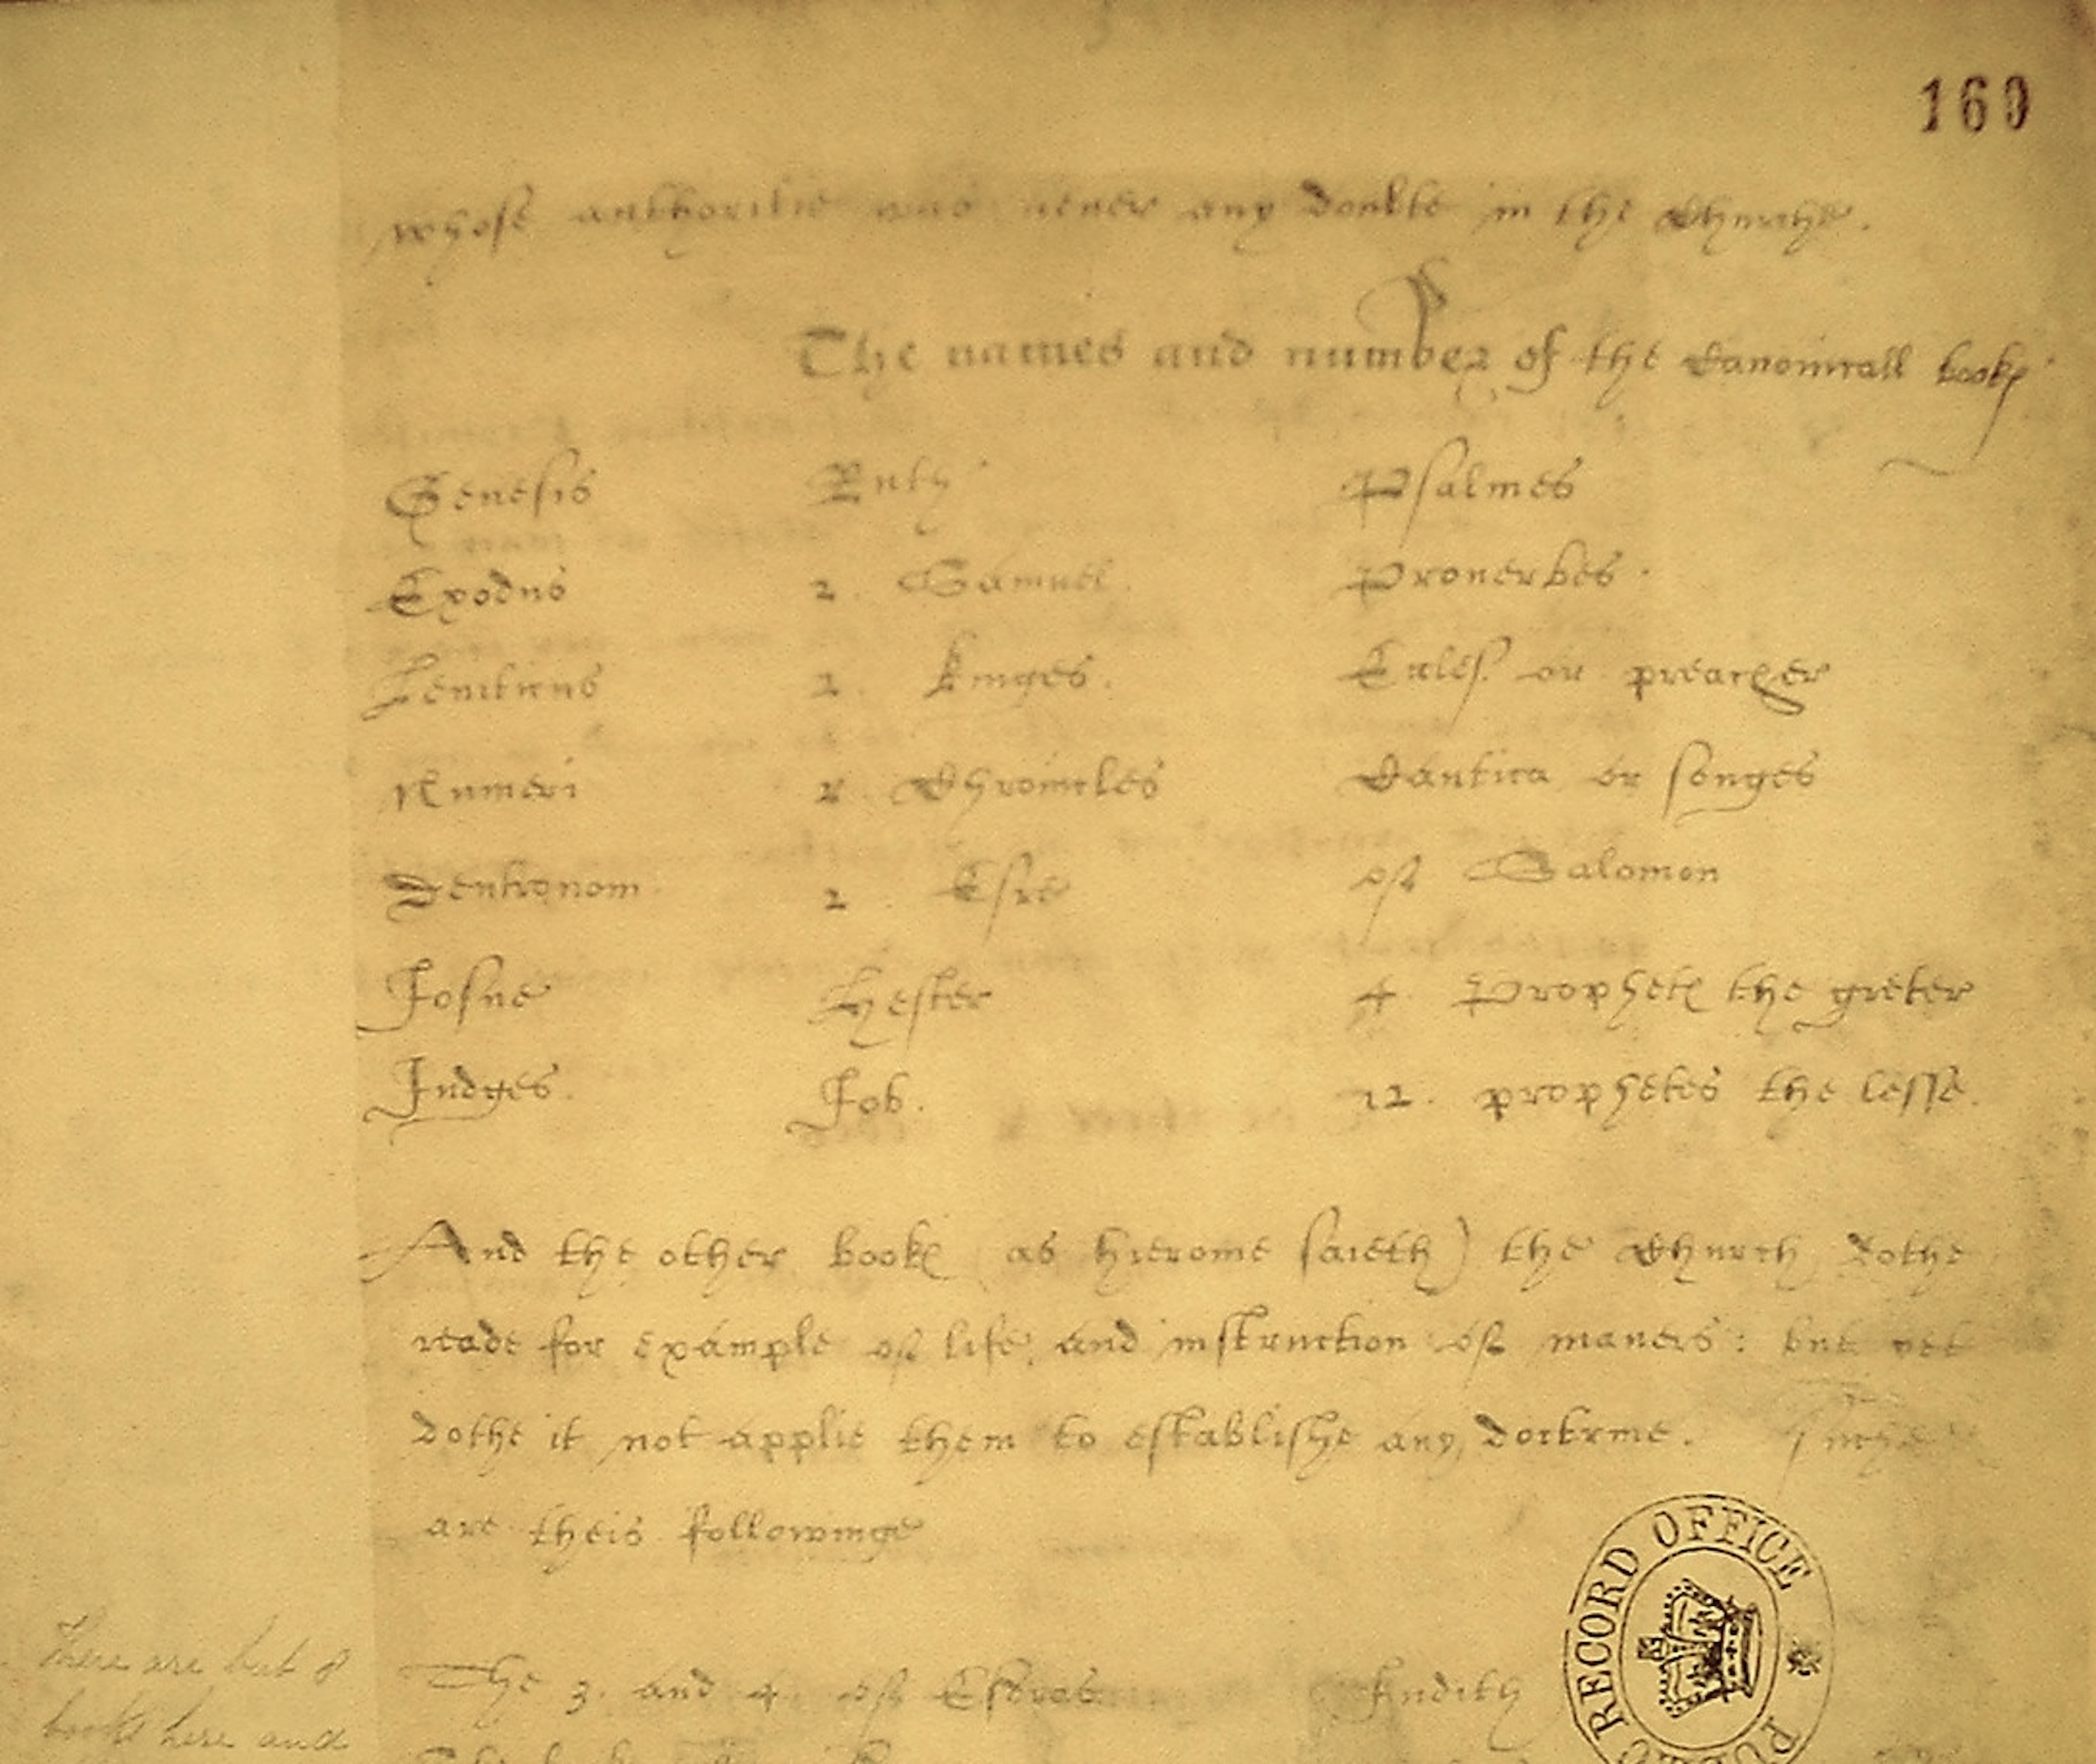 160
whose authoritie was neuer any doubte in the Churche.
The names and number of the Canonicall bookes
Genesis Ruth Psalmes
Exodus 2. Samuel. Prouerbes.
Leuiticus 2. Kinges. Eccles. or preacher
Numeri 2 Chronicles Cantica or songes
Deutronom. 2. Esre of Salomon
Josue Hester 4 Prophetes the greter
Judges. Job. 12. prophetes the lesse.
And the other bookes as hierome saieth) the Church dothe
reade for example of life, and instruction of maners: but yet
dothe it not applie them to establishe any doctrine. Suche
are theis followinge
There are but
The 3. and 4. of Esdras Judith
books here and
RECORD OFFICE